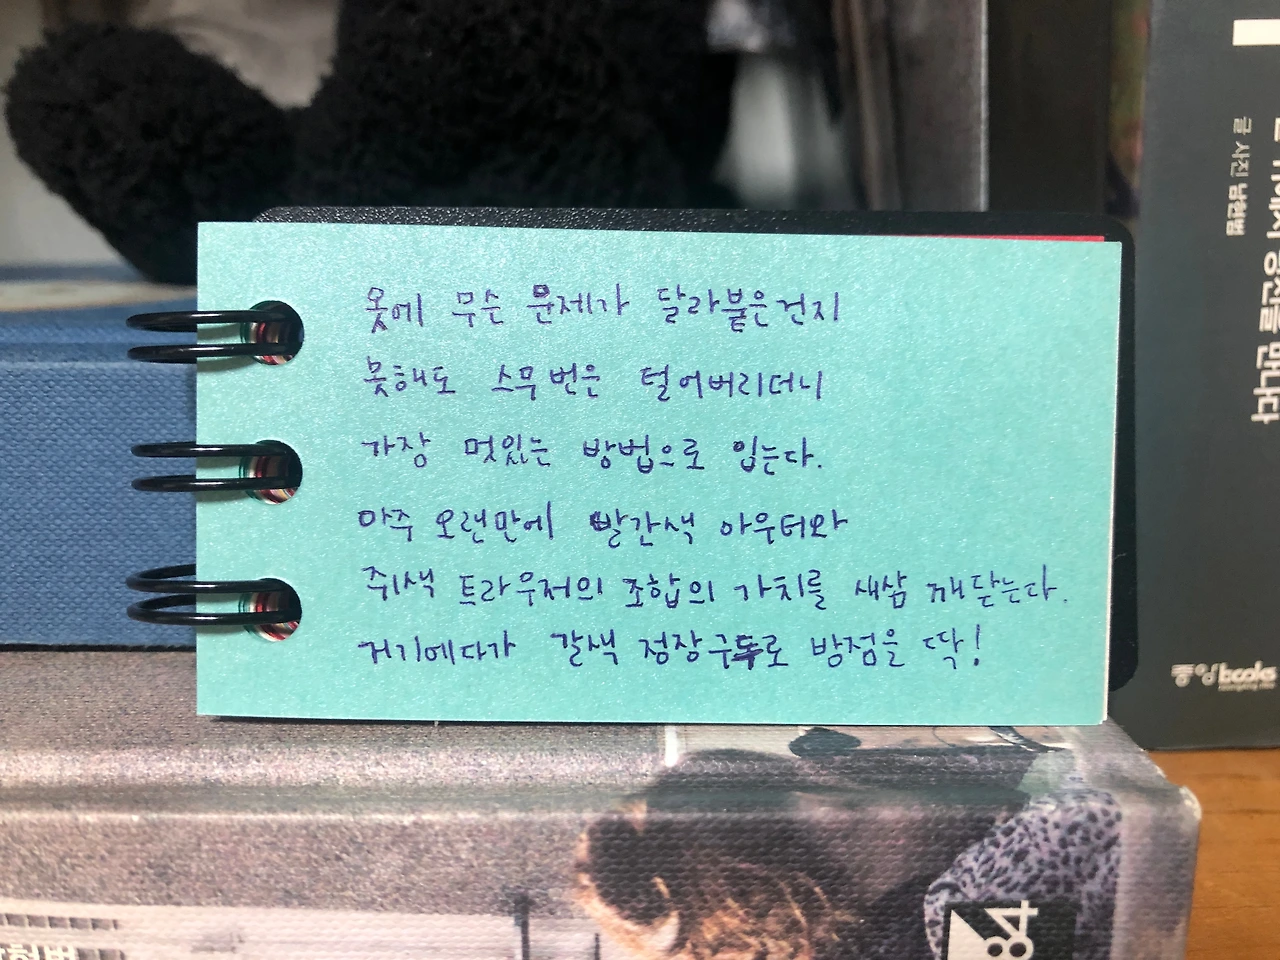 옷에 무슨 문제가 달라붙은건지
못해도 스무번은 털어버리더니
가장 멋있는 방법으로 입는다.
아주 오랜만에 빨간색 아우터와
쥐색 트라우저의 조합의 가치를 새삼 깨닫는다.
거기에다가 갈색 정장구두로 방점을 딱!
글 사진 남현범
만나다
중앙books
84